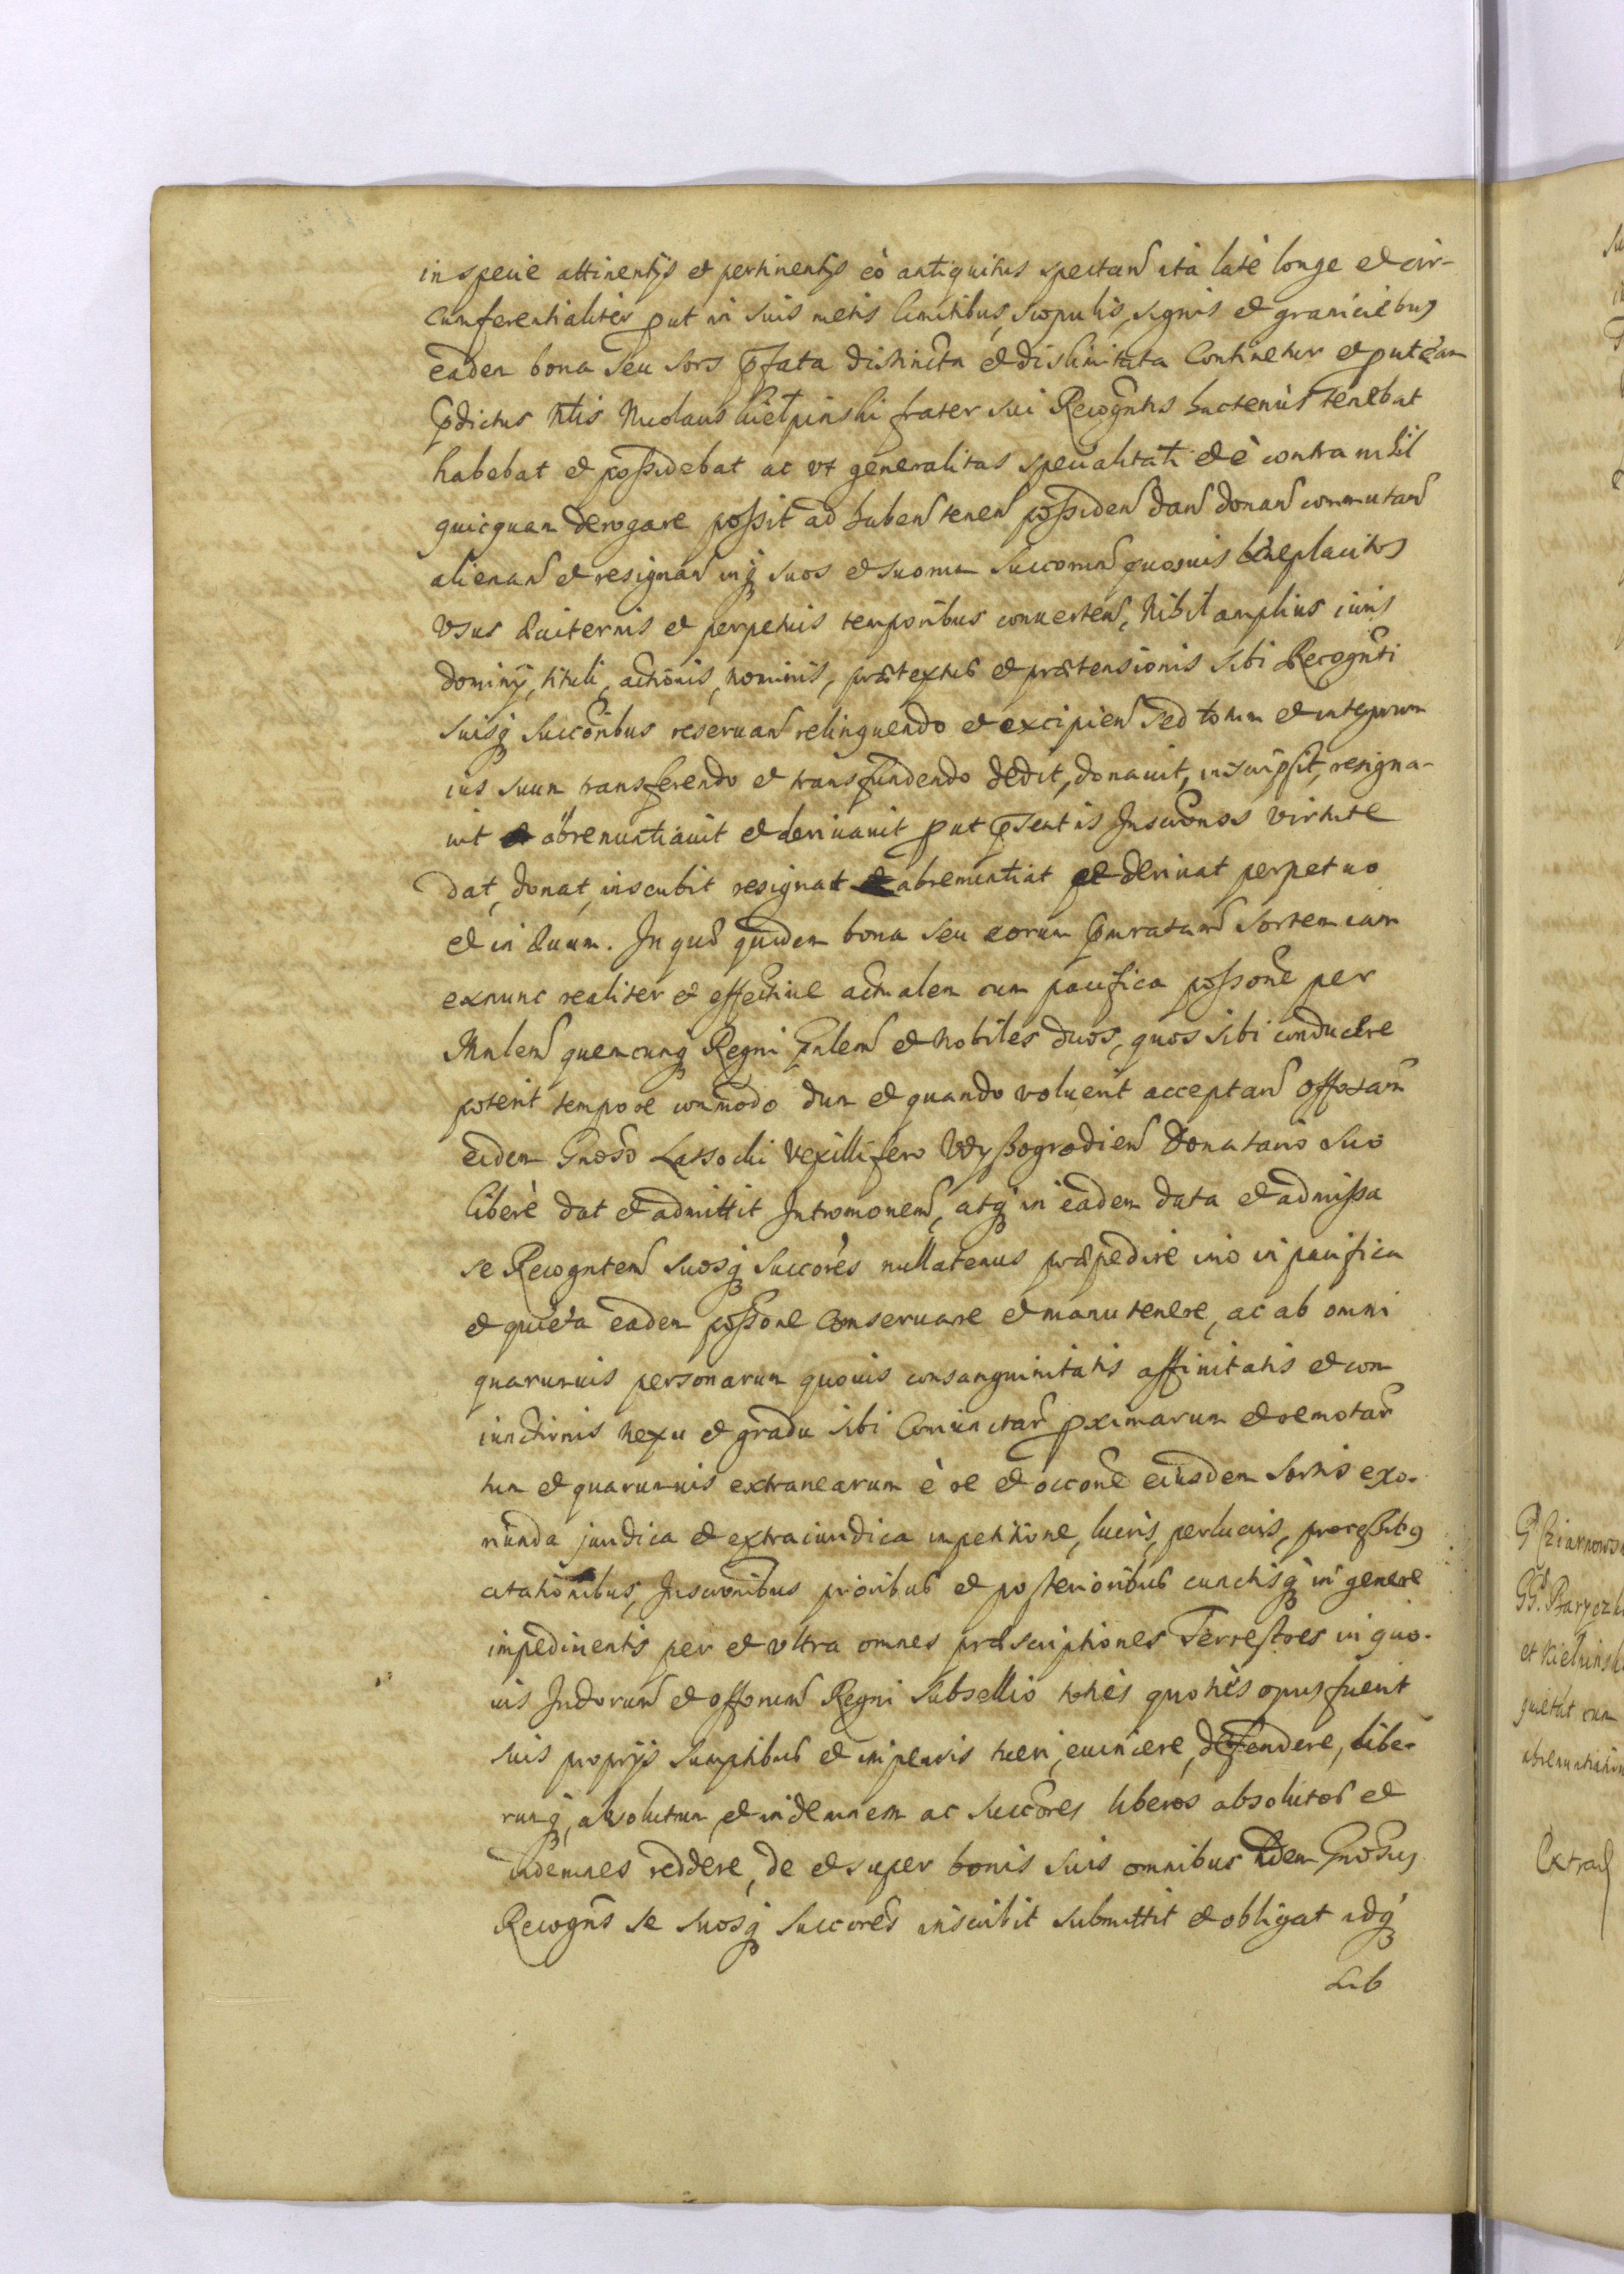 in specie attinentijs et pertinentijs eò antiquitus spectan ità latè longe et cir-
cumferentialiter put in suis metis limitibus, scopulis, signis et graniciebus
eadem bona seu sors pfata distincta et dislimitata continetur et put eam
pdictus Nlis Nicolaus Kiełpinski frater sui Recogntis hactenus tenebat
habebat et possidebat ac vt generalitas specialitati et è contra nihil
quicquam derogare possit ad haben tenen possiden dan donan commutan
alienan et resignan inq suos et suorum succorum quosuis beneplacitos
vsus æuiternis et perpetuis temporibus conuerten, Nihil amplius iuris
dominij, tituli, actionis, nominis, prætextus et prætensionis sibi Recognti
suisq succoribus reseruan relinquendo et excipien sed totum et integrum
ius suum transferendo et transfundendo dedit, donauit, inscripsit, resigna-
uit et abrenuntiauit et deriuauit put pntis Inscronis virtute
dat, donat, inscribit resignat et abrenuntiat et deriuat perpetuo
et in æuum. In quæ quidem bona seu eorum pmratam sortem iam
exnunc realiter et effectiue actualem cum pacifica possone per
Mnlem quemcunq Regni Gnlem et Nobiles duos, quos sibi conducere
poterit tempore commodo dum et quando voluerit acceptan Offertam
eidem Gnoso Lassocki Vexillifero Wyszogrodien Donatario suo
liberè dat et admittit Intromonem, atq in eadem data et admissa
se Recogntem suosq succores nullatenus præpedire imo in pacifica
et quieta eadem possone conseruare et manutenere, ac ab omni
quarumuis personarum quouis consanguinitatis affinitatis et con
iunctionis nexu et gradu sibi coniunctar pximarum et remotar
tum et quarumuis extranearum è re et occone eiusdem sortis exo-
riunda juridica et extraiuridica impetitione, lucris, perlucris, processibus
citationibus, Inscronibus prioribus et posterioribus cunctisq in genere
impedimentis per et vltra omnes præscriptiones Terrestres in quo-
uis Indorum et offorum Regni Subsellio toties quoties opus fuerit
suis proprijs sumptibus et impensis tueri, euincere, defendere, libe-
rumq, absolutum et indemnem ac succores liberos absolutos et
indemnes reddere, de et super bonis suis omnibus Idem Gnosus
Recogns se suosq succores inscribit submittit et obligat idq
sub